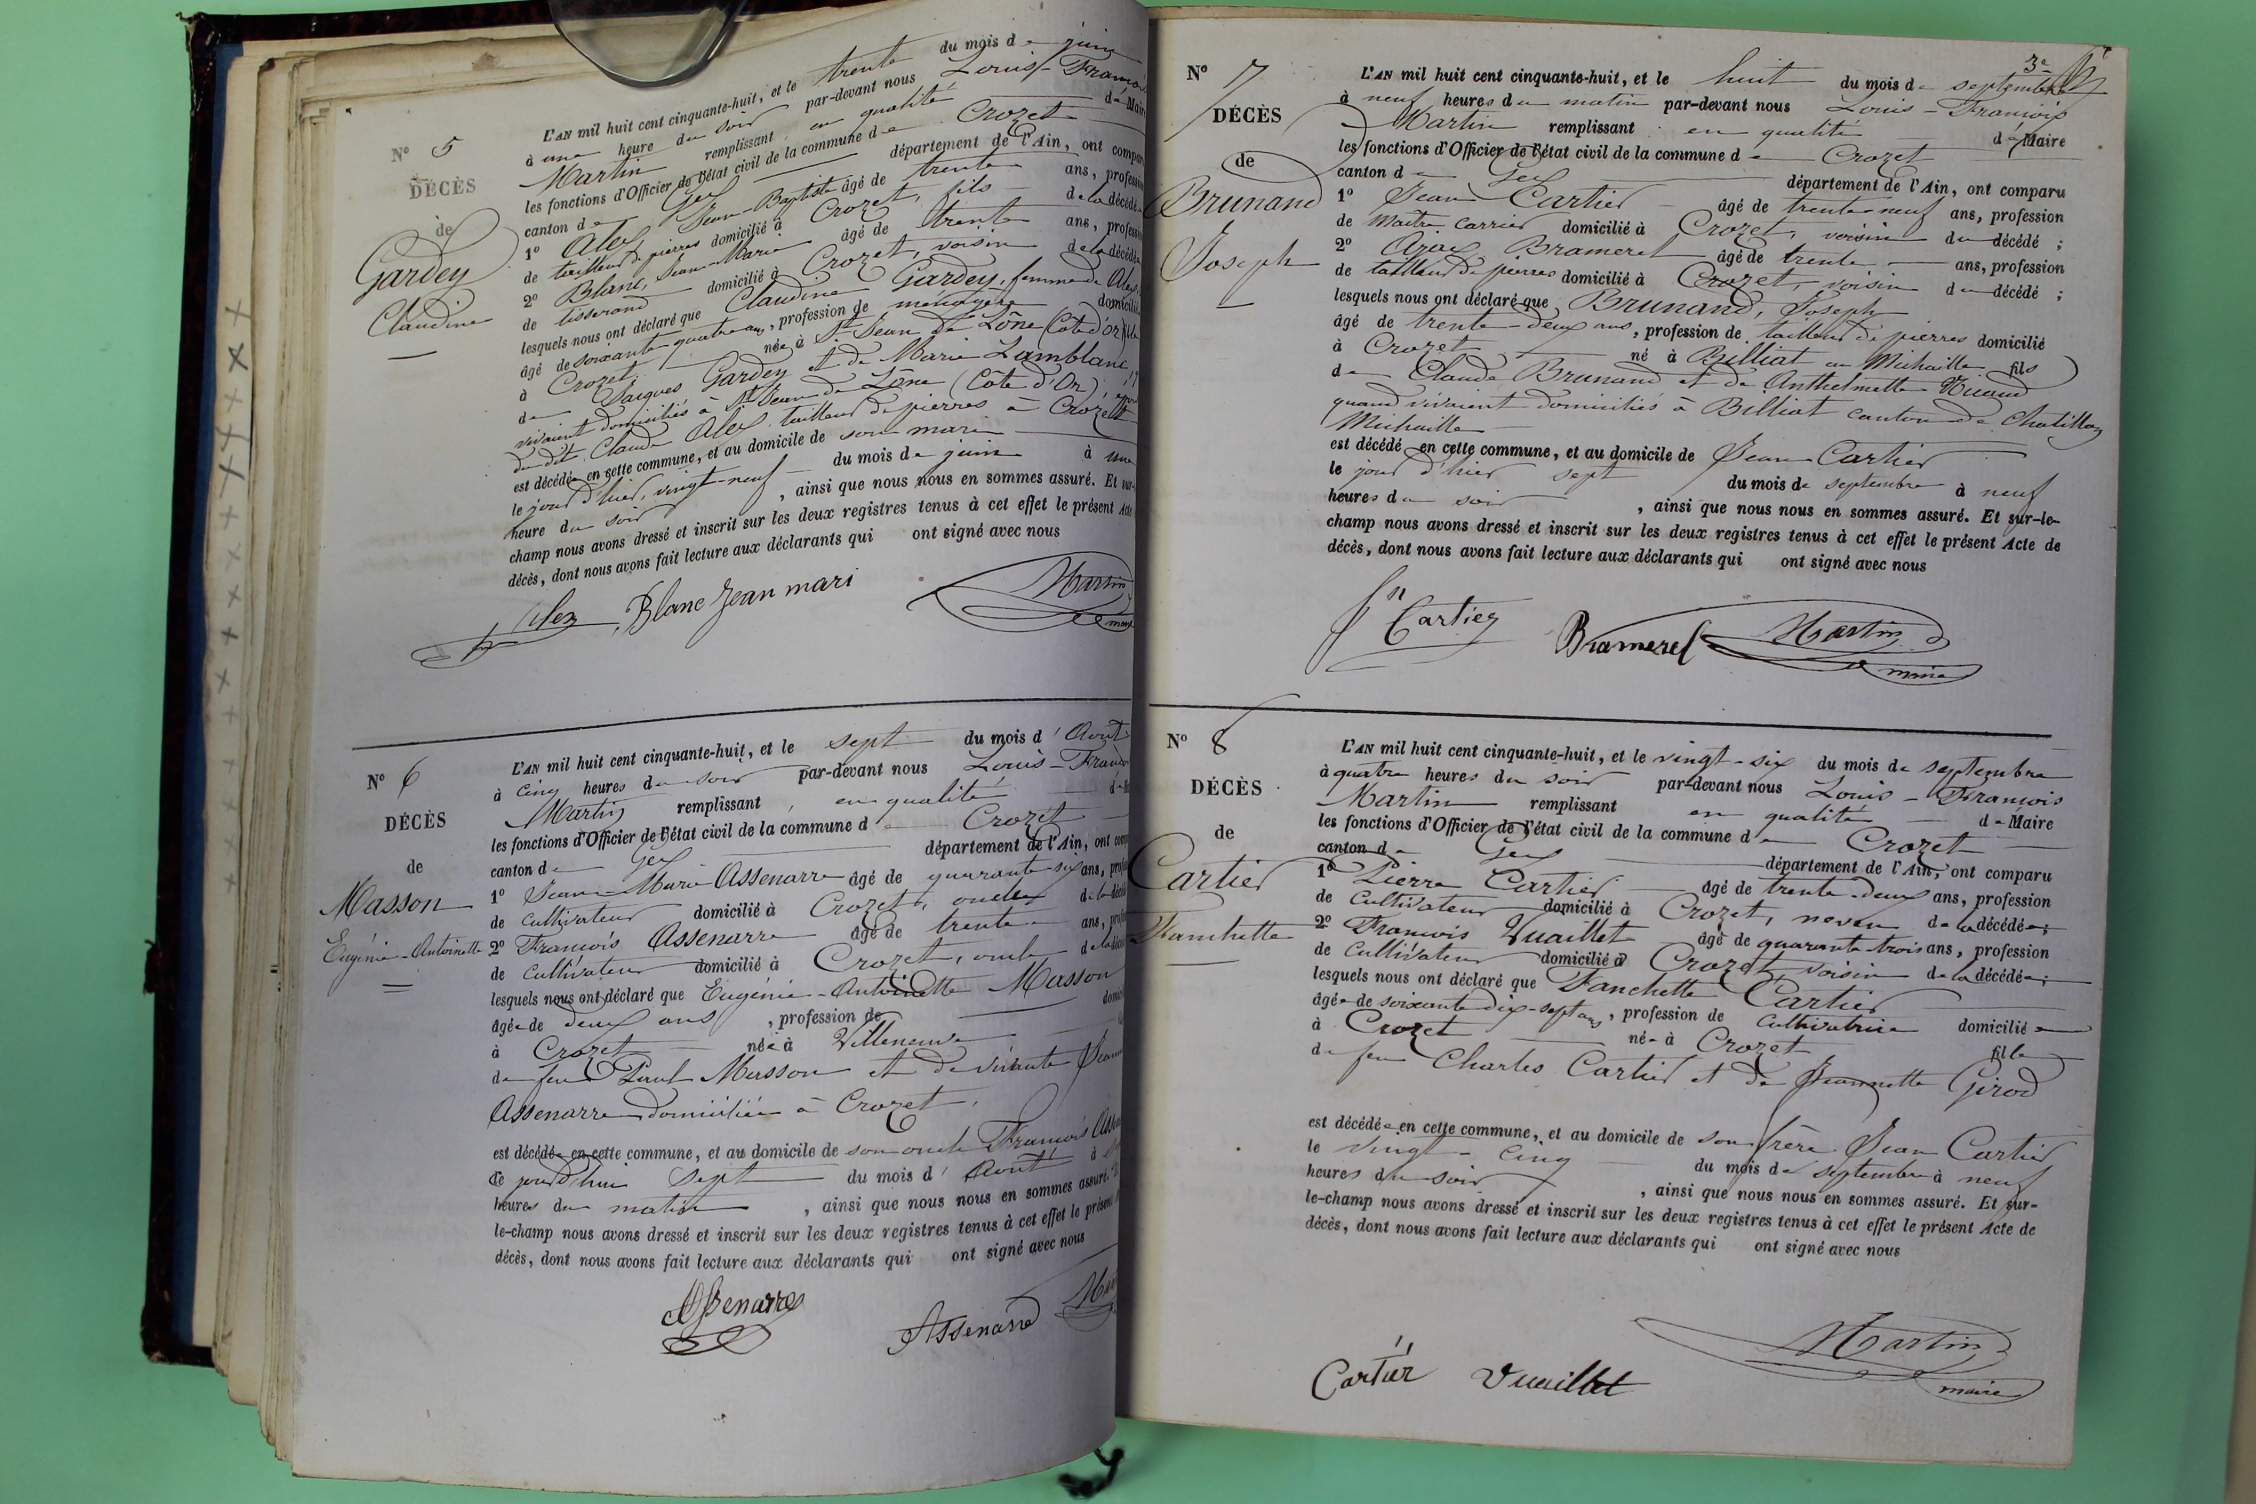 N° 5
DÉCÈS
de
Gardey
Claudine
L'AN mil huit cent cinquante-huit, et le trente du mois de juin
à une heure du soir par-devant nous Louis-François
Martin remplissant en qualité de Maire
les fonctions d'Officier de l'état civil de la commune de Crozet
canton de Gex département de l'Ain, ont compar
1° Alex, Jean-Baptiste âgé de trente ans, profession
de tailleur de pierres domicilié à Crozet, fils de la décédée
2° Blanc, Jean-Marie âgé de trente ans, profession
de tisserand domicilié à Crozet, voisin de la décédée
lesquels nous ont déclaré que Claudine Gardey, femme de Alex,
âgé de soixante quatre ans, profession de ménagère domicilié
à Crozet née à St Jean de Lône (Côte d'or) fille
de Jacques Gardey et de Marie Lamblanc
vivaient domiciliés à St Jean de Lône (Côte d'Or)
du dit Claude Alex tailleur de pierres à Crozet
est décédée en cette commune, et au domicile de son mari
le jour d'hier, vingt-neuf du mois de juin à une
heure du soir, ainsi que nous nous en sommes assuré. Et sur-le-
champ nous avons dressé et inscrit sur les deux registres tenus à cet effet le présent Acte
décès, dont nous avons fait lecture aux déclarants qui ont signé avec nous
Alex Blanc Jean mari Martin
maire
N° 6
DÉCÈS
de
Masson
Eugénie-Antoinette
L'AN mil huit cent cinquante-huit, et le sept du mois d'Août
à cinq heures du soir par-devant nous Louis-François
Martin remplissant en qualité de
les fonctions d'Officier de l'état civil de la commune d Crozet
canton de Gex département de l'Ain, ont comp
1° Jean-Marie Assenarre âgé de quarante-six ans, prof
de cultivateur domicilié à Crozet, oncle de la décéd
2° François Assenarre âgé de trente ans, prof
de cultivateur domicilié à Crozet, oncle de la décé
lesquels nous ont déclaré que Eugénie-Antoinette Masson
âgée de deux ans, profession de domici
à Crozet née à Villeneuve
de feu Paul Masson et de vivante Jeanne
Assenarre domiciliée à Crozet.
est décédée en cette commune, et au domicile de son oncle François Assen
Ce jourd'hui sept du mois d'Août à
heures du matin, ainsi que nous nous en sommes assuré.
le-champ nous avons dressé et inscrit sur les deux registres tenus à cet effet le présent
décès, dont nous avons fait lecture aux déclarants qui ont signé avec nous
Assenarre Assenarre Mar
3e
N° 7
DÉCÈS
de
Brunand
Joseph
L'AN mil huit cent cinquante-huit, et le huit du mois de septembre
à neuf heures du matin par-devant nous Louis-François
Martin remplissant en qualité de Maire
les fonctions d'Officier de l'état civil de la commune de Crozet
canton de Gex département de l'Ain, ont comparu
1° Jean Cartier âgé de trente-neuf ans, profession
de Maître carrier domicilié à Crozet, voisin du décédé ;
2° Ajax Brameret âgé de trente ans, profession
de tailleur de pierres domicilié à Crozet, voisin du décédé ;
lesquels nous ont déclaré que Brunand, Joseph
âgé de trente-deux ans, profession de tailleur de pierres domicilié
à Crozet né à Billiat en Michaille fils
de Claude Brunand et de Anthelmette
quand vivaient domiciliés à Billiat canton de Chatillon
Michaille
est décédé en cette commune, et au domicile de Jean Cartier
le jour d'hier sept du mois de septembre à neuf
heures du soir, ainsi que nous nous en sommes assuré. Et sur-le-
champ nous avons dressé et inscrit sur les deux registres tenus à cet effet le présent Acte de
décès, dont nous avons fait lecture aux déclarants qui ont signé avec nous
Jn Cartier Brameret Martin
maire
N° 8
DÉCÈS
de
Cartier
Fanchette
L'AN mil huit cent cinquante-huit, et le vingt-six du mois de septembre
à quatre heures du soir par-devant nous Louis-François
Martin remplissant en qualité de Maire
les fonctions d'Officier de l'état civil de la commune de Crozet
canton de Gex département de l'Ain, ont comparu
1° Pierre Cartier âgé de trente-deux ans, profession
de Cultivateur domicilié à Crozet, neveu de la décédée ;
2° François Vuaillet âgé de quarante trois ans, profession
de Cultivateur domicilié à Crozet, voisin de la décédée ;
lesquels nous ont déclaré que Fanchette Cartier
âgée de soixante dix-sept ans, profession de Cultivatrice domiciliée
à Crozet née à Crozet fille
de feu Charles Cartier et de Jeannette Girod
est décédée en cette commune, et au domicile de son frère Jean Cartier
le vingt-cinq du mois de septembre à neuf
heures du soir, ainsi que nous nous en sommes assuré. Et sur-
le-champ nous avons dressé et inscrit sur les deux registres tenus à cet effet le présent Acte de
décès, dont nous avons fait lecture aux déclarants qui ont signé avec nous
Cartier Vuaillet Martin
maire